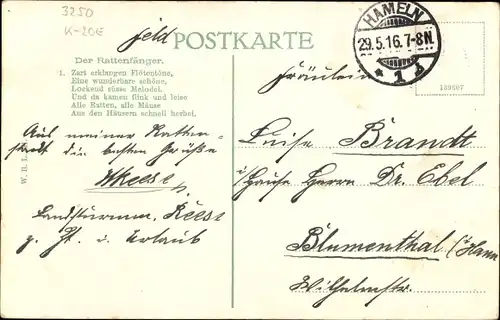 3250
K-20E
Feld POSTKARTE
HAMELN
29.5.16.7-8N.
* 1 d
189607
Der Rattenfänger.
1. Zart erklangen Flötentöne,
Eine wunderbare schöne,
Lockend süsse Melodei.
Und da kamen flink und leise
Alle Ratten, alle Mäuse
Aus den Häusern schnell herbei.
W. R. L.
Auf meiner Ratten-
stadt die besten Grüße
Landsturmm.
z. Zt. i. Urlaub
Fräulein
Luise Brandt
i/Hause Herrn Dr. Ebel
Blumenthal (/Hann
Wilhelmstr.